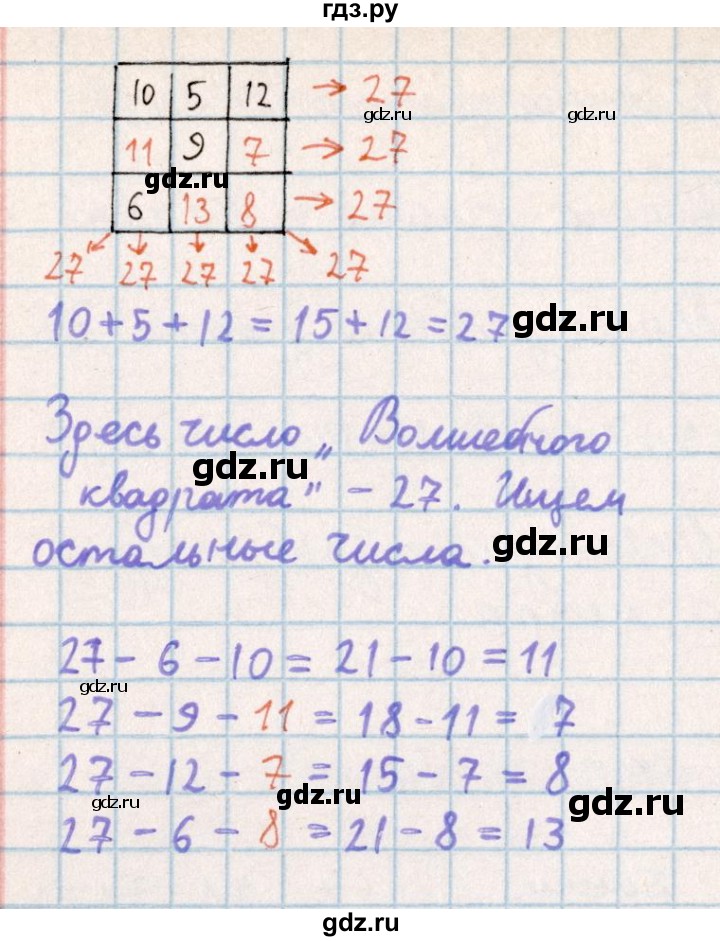 гдз.ру
10 5 12 → 27
gdz.ru gdz.ru
11 9 7 → 27
gdz.ru
6 13 8 → 27
27 27 27 27 27
10 + 5 + 12 = 15 + 12 = 27
gdz.ru
Здесь число „ Волшебного
gdz.ru
квадрата" - 27. Ищем
остальные числа.
gdz.ru
27 - 6 - 10 = 21 - 10 = 11
gdz.ru
27 - 9 - 11 = 18 - 11 = 7
27 - 12 - 7 = 15 - 7 = 8
gdz.ru gdz.ru gdz.ru
27 - 6 - 8 = 21 - 8 = 13
gdz.ru